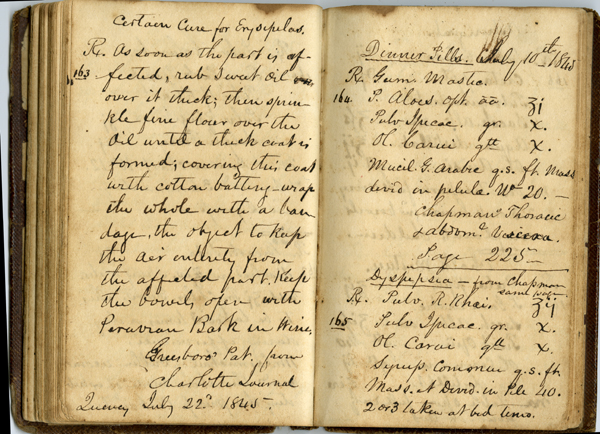 Certain Cure for Erysipelas.
Rx. As soon as the part is af-
163 fected, rub Sweat Oil
over it thick; then sprin-
kle fine flour over the
Oil until a thick coat is
formed; covering this coat
with cotton batting - wrap
the whole with a ban
dage, the object to keep
the air entirely from
the affected part. Keep
the bowels open with
Peruvian Bark in Wine,
Greesboro Pat. from
Charlotte Journal
Quincy July 22d 1845.
Dinner Pills. July 10th 1845
Rx Gum Mastic.
164 P. Aloes. opt. aa. ʒj
Pulv Ipecac. gr. x.
Ol. Carui gtt x.
Mucil. G. Arabic q.s. ft. Mass
divid in pilula No 20. —
Chapmans Thoracic
& abdoml Viscera.
Page 225—
Dyspepsia — from Chapman
same work—
Rx. Pulv. R. Rhei. ʒij
165 Pulv Ipecac. gr. x.
Ol. Carui gtt x.
Syrup. Common q.s. ft.
Mass. et Divid. in Pile 40.
2 or 3 taken at bed time.